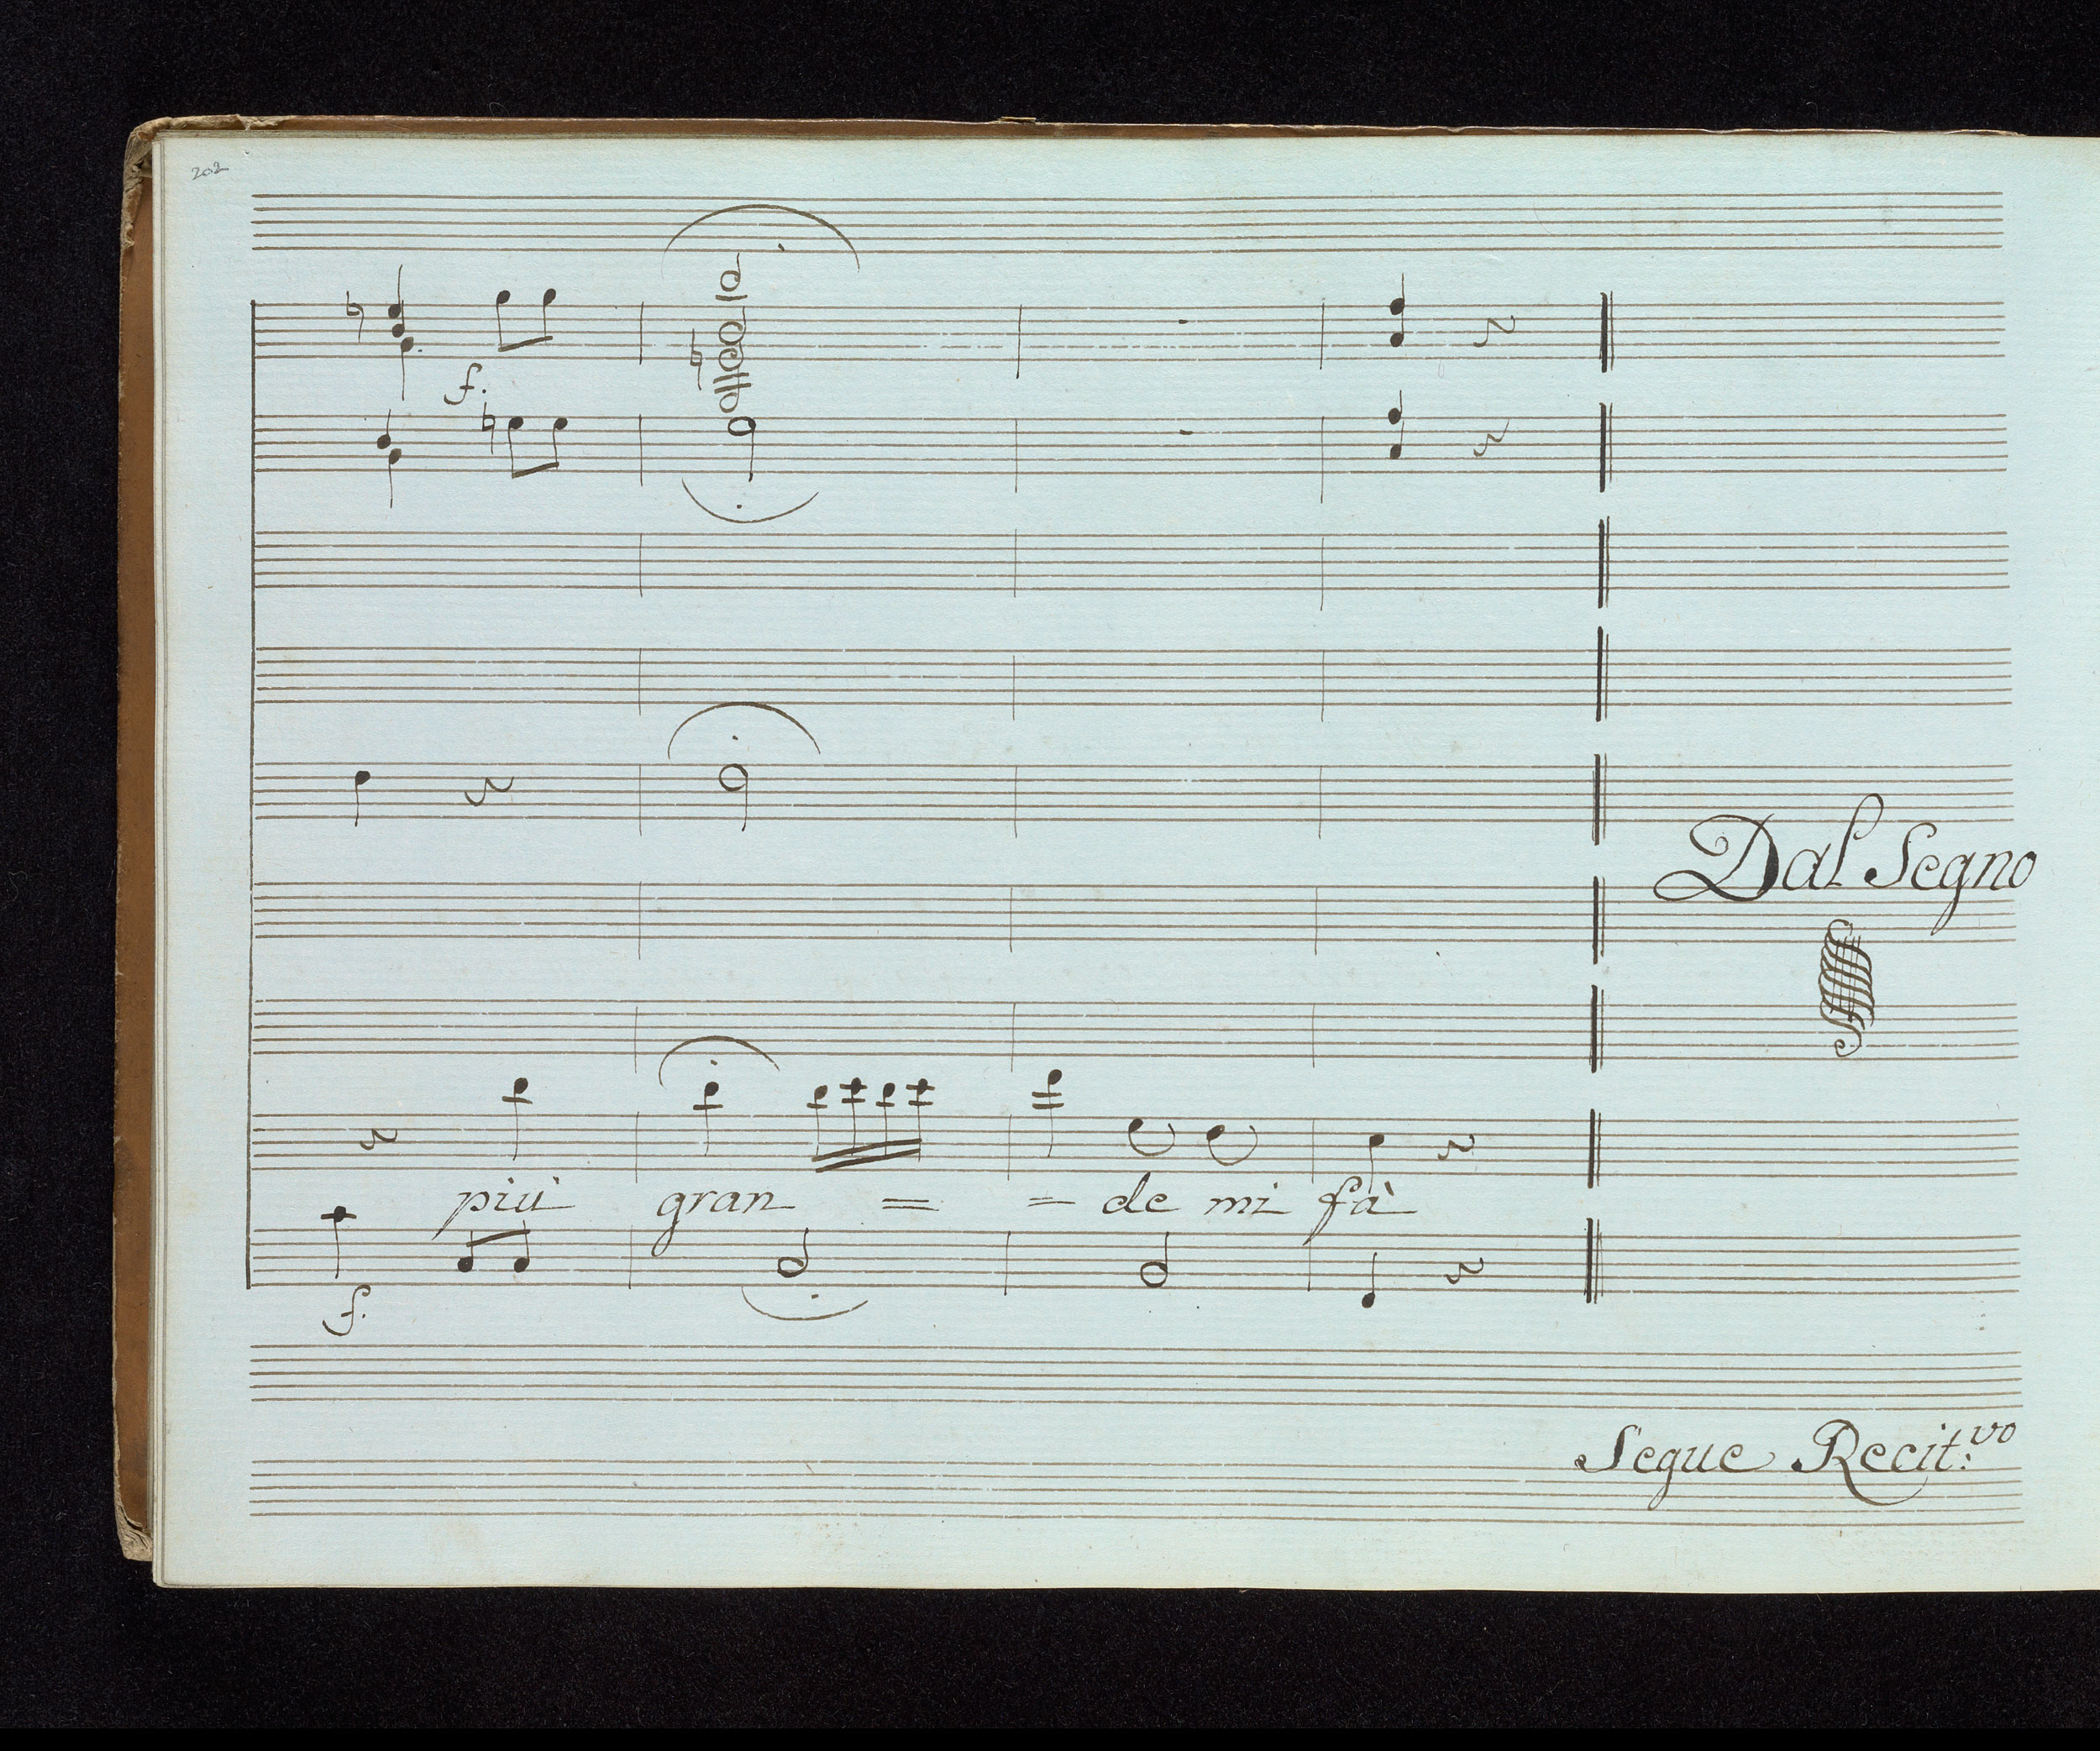 202
f.
Dal Segno
più gran = = de mi fà
f.
Segue Recit:vo